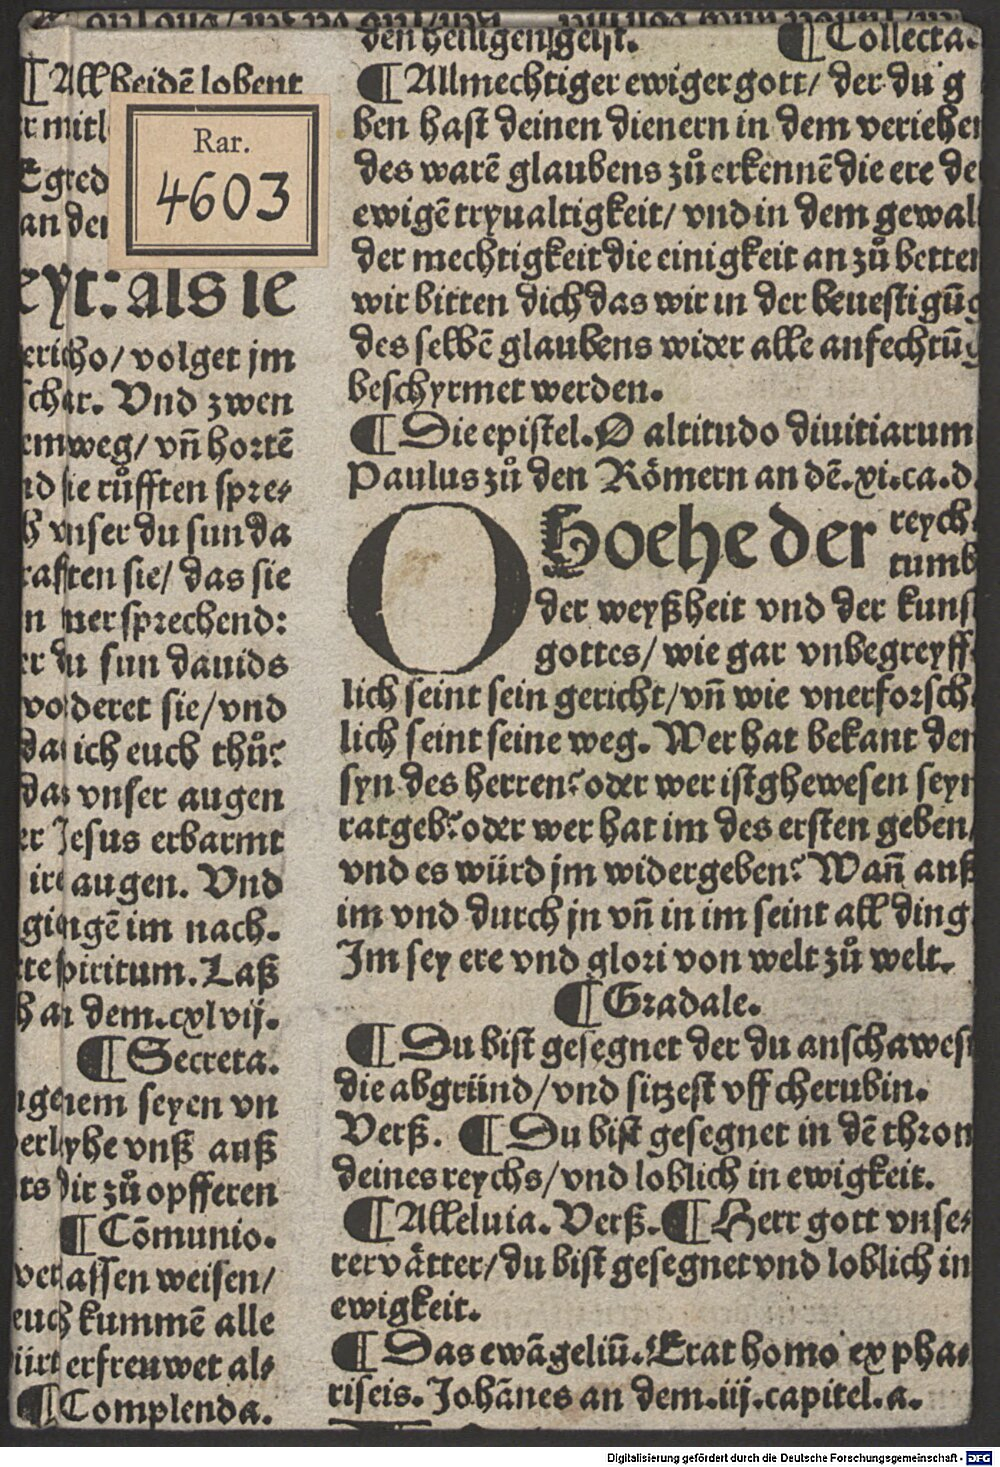 ¶ All beidē lobent
Rar.
4603
eyt: als ie
ericho/ volget jm
schar. Vnd zwen
em weg/ vñ hortē
nd sie růfften spre⸗
vnser du sun da
rafften sie/ das sie
n mer sprechend:
du sun dauids
voderet sie/ vnd
da ich euch thů?
das vnser augen
er Jesus erbarmt
ire augen. Vnd
giengē im nach.
te spiritum. Laß
an dem. cxlvij.
¶ Secreta.
genem seyen vn
verlyhe vnß auß
ts dir zů opfferen
¶ Cōmunio.
verlassen weisen/
euch kummē alle
würt erfreuwet al⸗
¶ Complenda.
den heiligen geist. ¶ Collecta.
¶ Allmechtiger ewiger gott/ der du g
ben hast deinen dienern in dem veriehen
des warē glaubens zů erkennē die ere de
ewigē tryualtigkeit/ vnd in dem gewal
der mechtigkeit die einigkeit an zů betten
wir bitten dich das wir in der beuestigūg
des selbē glaubens wider alle anfechtūg
beschyrmet werden.
¶ Die epistel. O altitudo diuitiarum
Paulus zů den Römern an dē. xi. ca. d.
O Hoehe der reych⸗
tumb
der weyßheit vnd der kunst
gottes/ wie gar vnbegreyff⸗
lich seint sein gericht/ vñ wie vnerforsch⸗
lich seint seine weg. Wer hat bekant den
syn des herren? oder wer ist ghewesen seyn
ratgeb? oder wer hat im des ersten geben/
vnd es würd jm widergeben? Wañ auß
im vnd durch jn vñ in im seint all ding.
Im sey ere vnd glori von welt zů welt.
¶ Gradale.
¶ Du bist gesegnet der du anschawest
die abgründ/ vnd sitzest vff cherubin.
Verß. ¶ Du bist gesegnet in dē thron
deines reychs/ vnd loblich in ewigkeit.
¶ Alleluia. Verß. ¶ Herr gott vnse⸗
rer vätter/ du bist gesegnet vnd loblich in
ewigkeit.
¶ Das ewāgeliū. Erat homo ex pha⸗
riseis. Johānes an dem. iij. capitel. a.
Digitalisierung gefördert durch die Deutsche Forschungsgemeinschaft - DFG